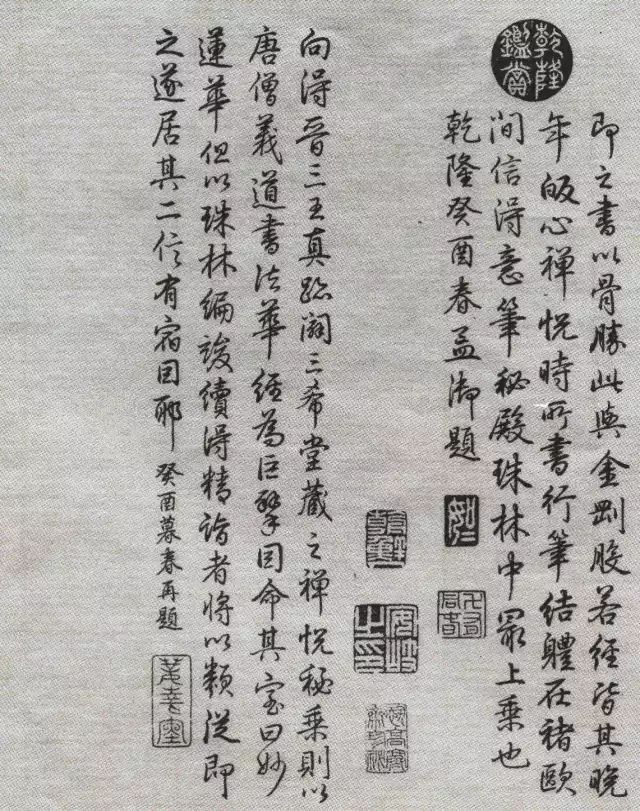 乾隆鑑賞
即之書以骨勝此與金剛般若經皆其晚
年皈心禪悅時所書行筆結體在褚歐
間信得意筆秘殿珠林中最上乘也
乾隆癸酉春孟御題
向得晉三王真跡闢三希堂藏之禪悅秘乘則以
唐僧義道書法華經為巨擘因命其室曰妙
蓮華但以珠林編竣續得精詣者將以類從即
之遂居其二信有宿因耶癸酉暮春再題